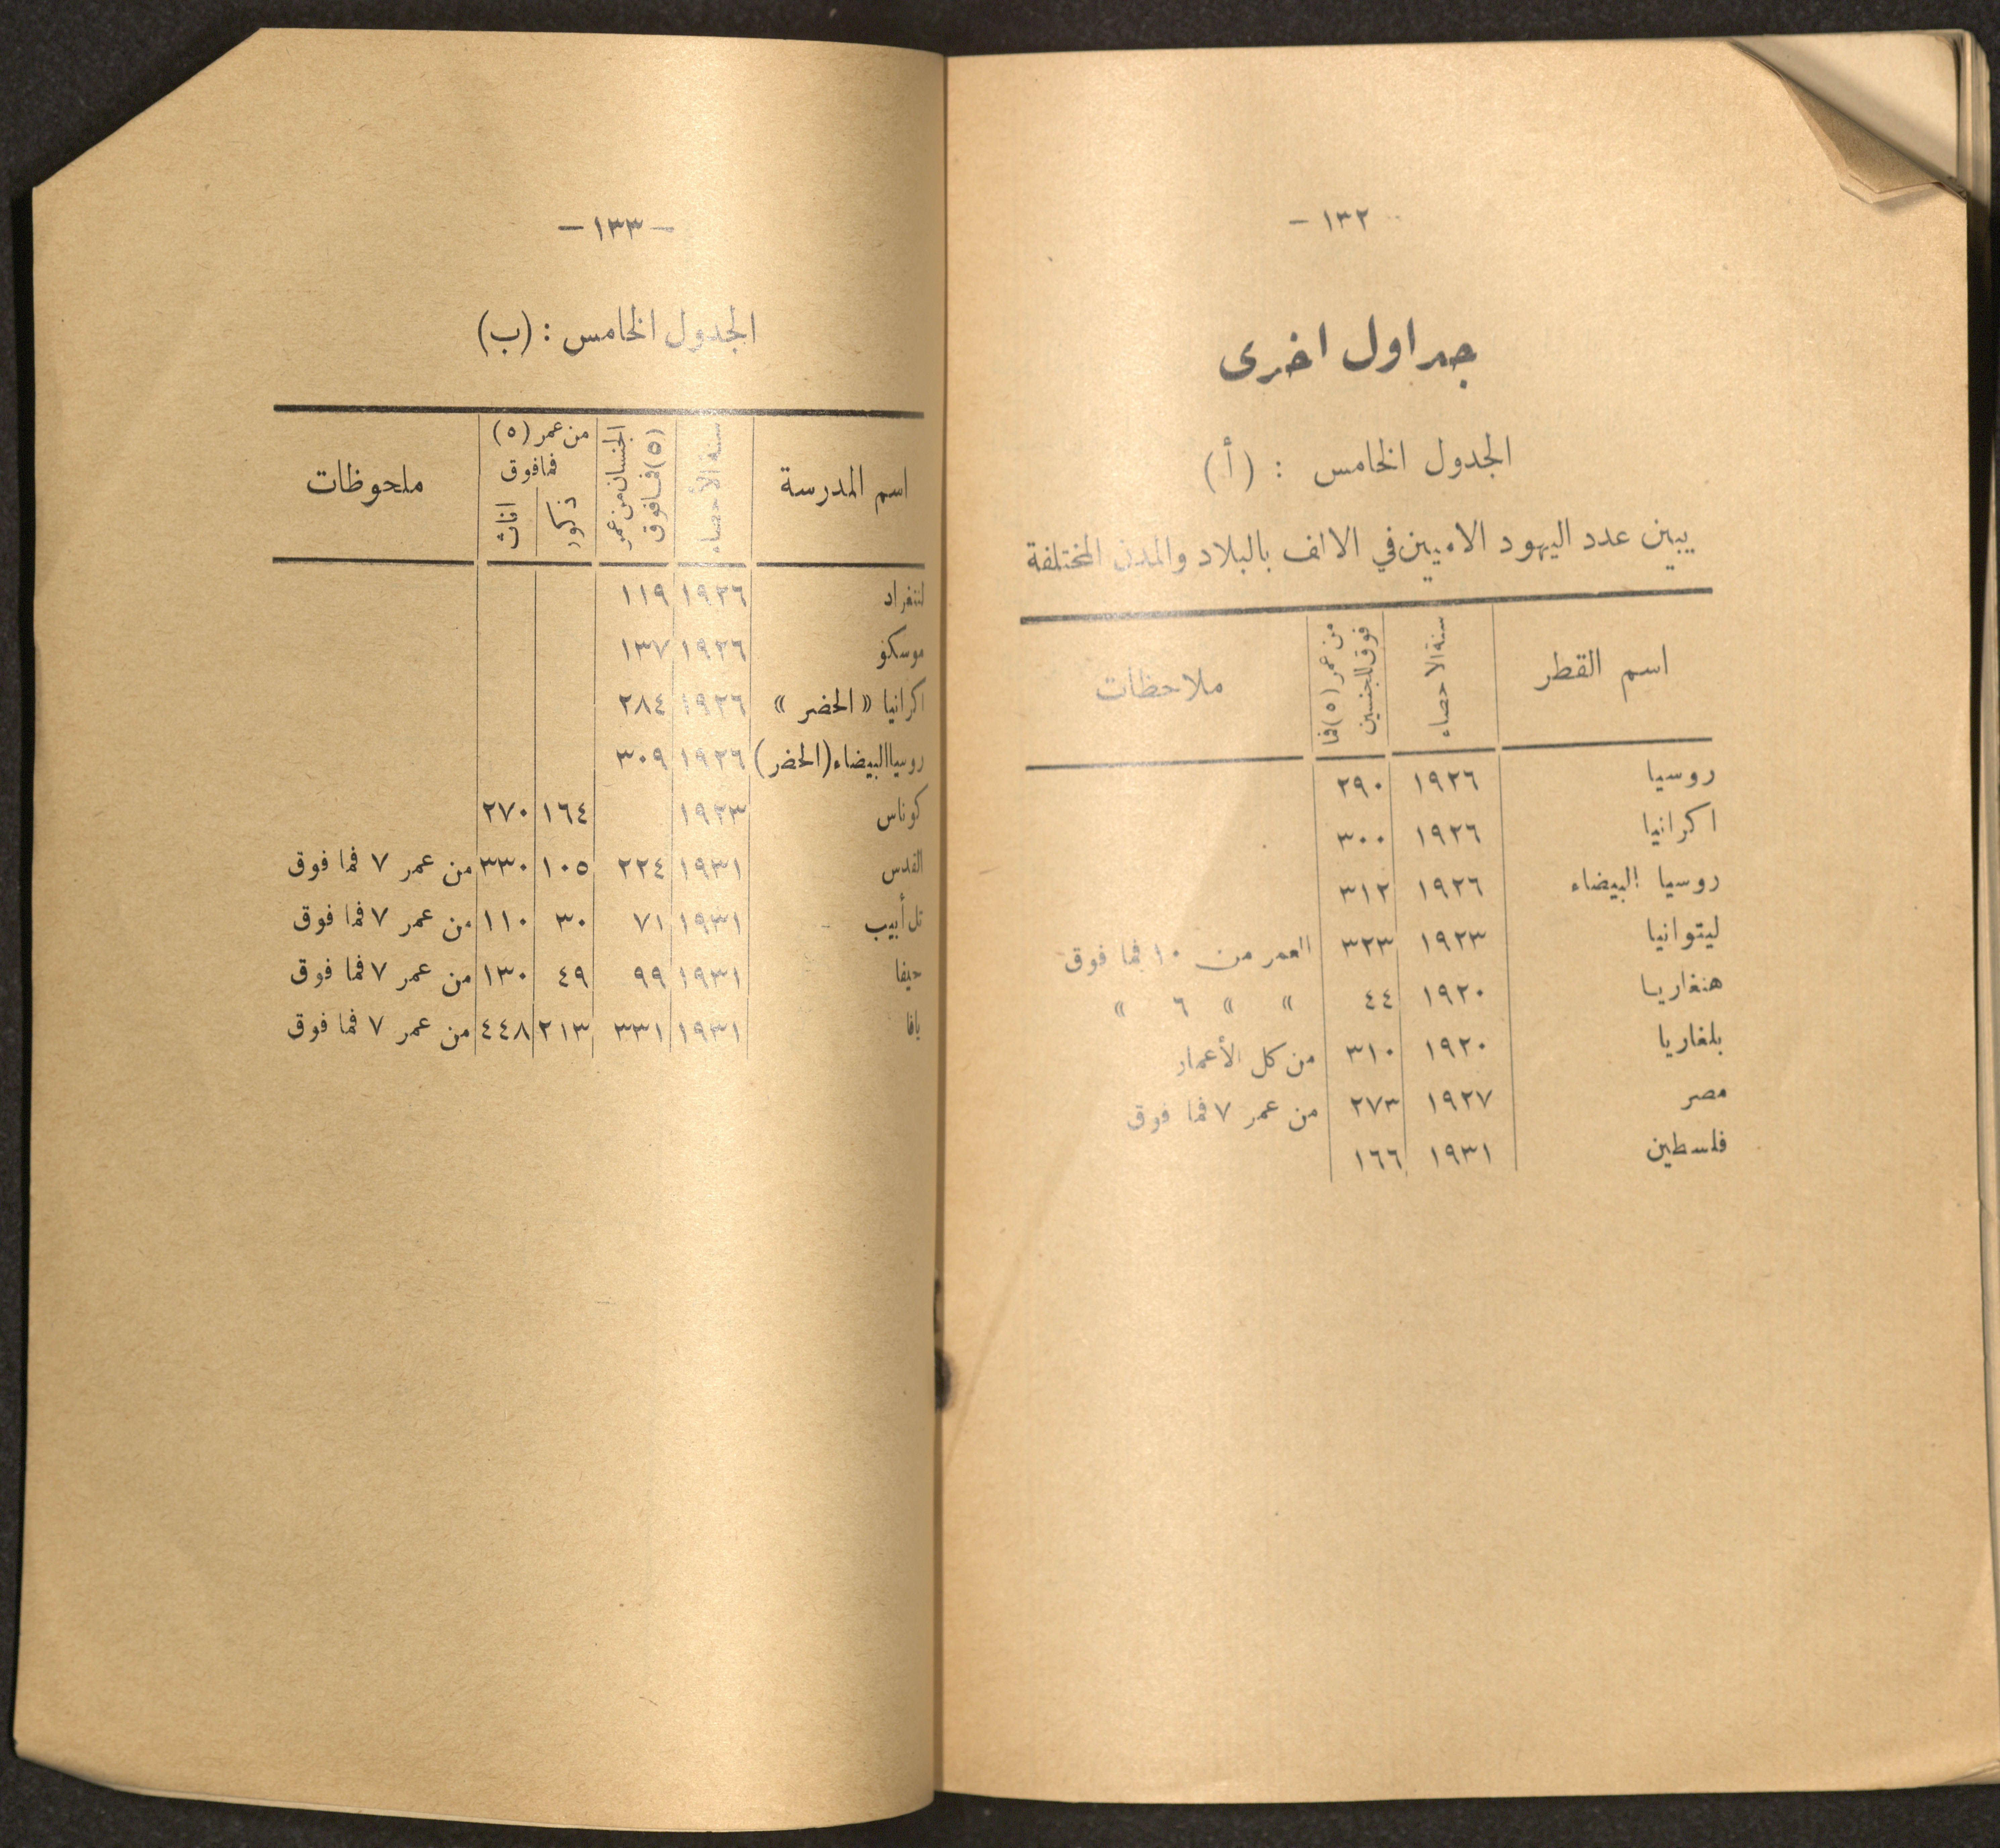 ١٣٢ –
جداول اخرى
الجدول الخامس : (أ)
يبين عدد اليهود الاميين في الالف بالبلاد والمدن المختلفة
اسم القطر سنة الاحصاء من عمر (٥) فما فوق للجنسين ملاحظات
روسيا ١٩٢٦ ٢٩٠
اكرانيا ١٩٢٦ ٣٠٠
روسيا البيضاء ١٩٢٦ ٣١٢
ليتوانيا ١٩٢٣ ٣٢٣ العمر من ١٠ فما فوق
هنغاريا ١٩٢٠ ٤٤ » » ٦ »
بلغاريا ١٩٢٠ ٣١٠ من كل الأعمار
مصر ١٩٢٧ ٢٧٣ من عمر ٧ فما فوق
فلسطين ١٩٣١ ١٦٦
– ١٣٣ –
الجدول الخامس : (ب)
اسم المدرسة سنة الأحصاء الجنسان من عمر (٥) فما فوق من عمر (٥) فما فوق ذكور اناث ملحوظات
لننغراد ١٩٢٦ ١١٩
موسكو ١٩٢٦ ١٣٧
اكرانيا « الحضر » ١٩٢٦ ٢٨٤
روسيا البيضاء (الحضر) ١٩٢٦ ٣٠٩
كوناس ١٩٢٣ ١٦٤ ٢٧٠
القدس ١٩٣١ ٢٢٤ ١٠٥ ٣٣٠ من عمر ٧ فما فوق
تل أبيب ١٩٣١ ٧١ ٣٠ ١١٠ من عمر ٧ فما فوق
حيفا ١٩٣١ ٩٩ ٤٩ ١٣٠ من عمر ٧ فما فوق
يافا ١٩٣١ ٣٣١ ٢١٣ ٤٤٨ من عمر ٧ فما فوق